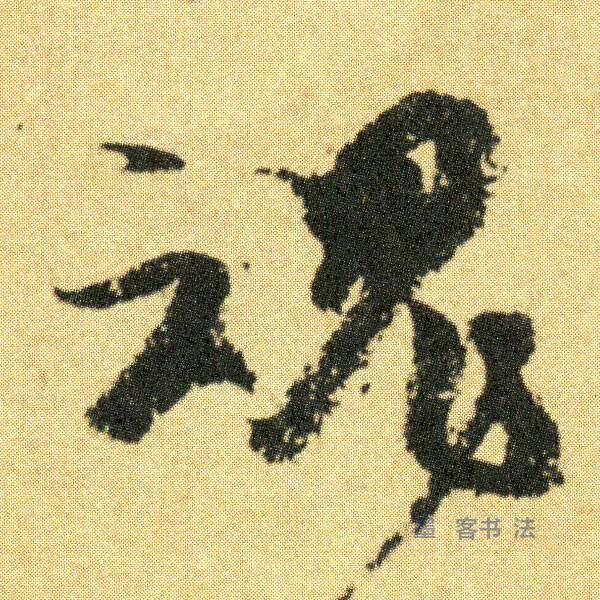 魂
墨 客书 法